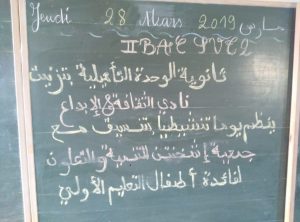 Jeudi 28 Mars 2019 مارس
II BAC PVC2
ثانوية الوحدة التأهيلية بتزنيت
نادي الثقافة و الإبداع
ينظم يوما تنشيطيا بتنسيق مع
جمعية إشنتن للتنمية والتعاون
لفائدة أطفال التعليم الأولي